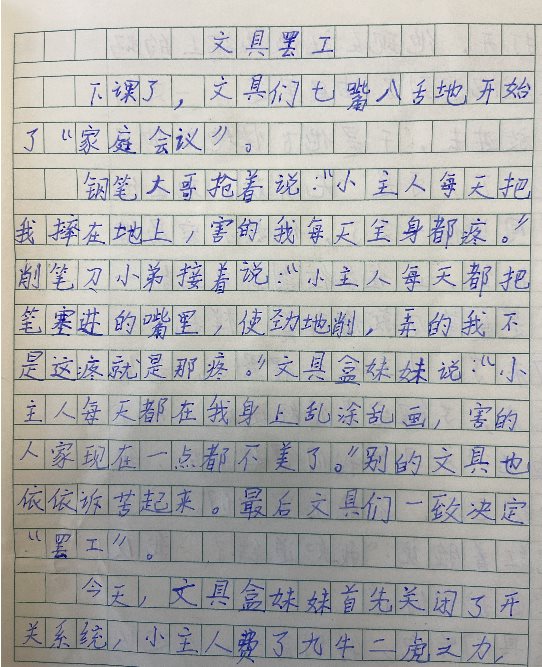 文具罢工
下课了，文具们七嘴八舌地开始
了“家庭会议”。
钢笔大哥抢着说：“小主人每天把
我摔在地上，害的我每天全身都疼。”
削笔刀小弟接着说：“小主人每天都把
笔塞进的嘴里，使劲地削，弄的我不
是这疼就是那疼。”文具盒妹妹说：“小
主人每天都在我身上乱涂乱画，害的
人家现在一点都不美了。”别的文具也
依依诉苦起来。最后文具们一致决定
“罢工”。
今天，文具盒妹妹首先关闭了开
关系统，小主人费了九牛二虎之力，